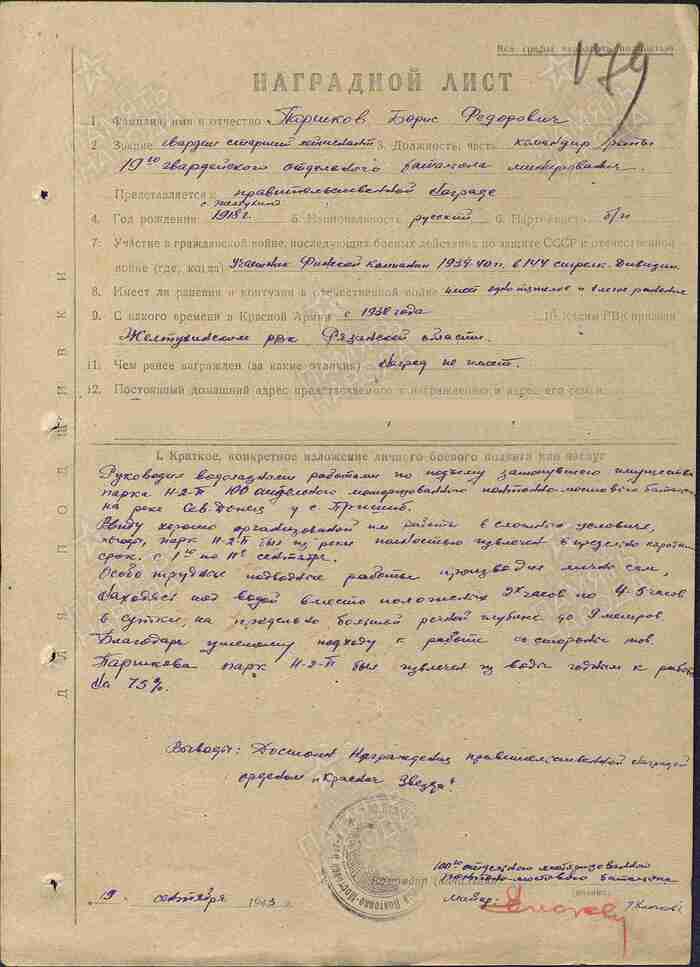 Все графы заполнять полностью
179
НАГРАДНОЙ ЛИСТ
1. Фамилия, имя и отчество Паршков Борис Федорович
2. Звание гвардии старший лейтенант 3. Должность, часть командир роты
19го гвардейского отдельного батальона минирования
Представляется к правительственной награде
4. Год рождения 1918 г. 5. Национальность русский 6. Партийность б/п
7. Участие в гражданской войне, последующих боевых действиях по защите СССР и отечественной
войне (где, когда) Участник Финской кампании 1939-40 гг. в 144 стрелк. дивизии.
8. Имеет ли ранения и контузии в отечественной войне имеет одно тяжелое и легкое ранение
9. С какого времени в Красной Армии с 1938 года 10. Каким РВК призван
Желтухинским рвк Рязанской области.
11. Чем ранее награжден (за какие отличия) Наград не имеет.
12. Постоянный домашний адрес представляемого к награждению и адрес его семьи
I. Краткое, конкретное изложение личного боевого подвига или заслуг
Руководил водолазными работами по подъему затонувшего имущества
парка Н-2-П 100 отдельного моторизованного понтонно-мостового батальона
на реке Сев-Донец у с. Пришиб.
Ввиду хорошо организованной им работы в сложных условиях,
парк Н-2-П был из реки полностью извлечен в предельно короткий
срок. с 1го по 11е сентября.
Особо трудные подводные работы производил лично сам,
находясь под водой вместо положенных 2х часов по 4-5 часов
в сутки, на предельно большой речной глубине до 9 метров.
Благодаря умелому подходу к работе со стороны тов.
Паршкова парк Н-2-П был извлечен из воды годным к работе
на 75%.
Выводы: Достоин награждения правительственной наградой
орденом "Красная Звезда".
100го отдельного моторизованного
понтонно-мостового батальона
Командир (начальник)
майор:
(подпись)
19 сентября 1943 г.
ДЛЯ ПОДШИВКИ